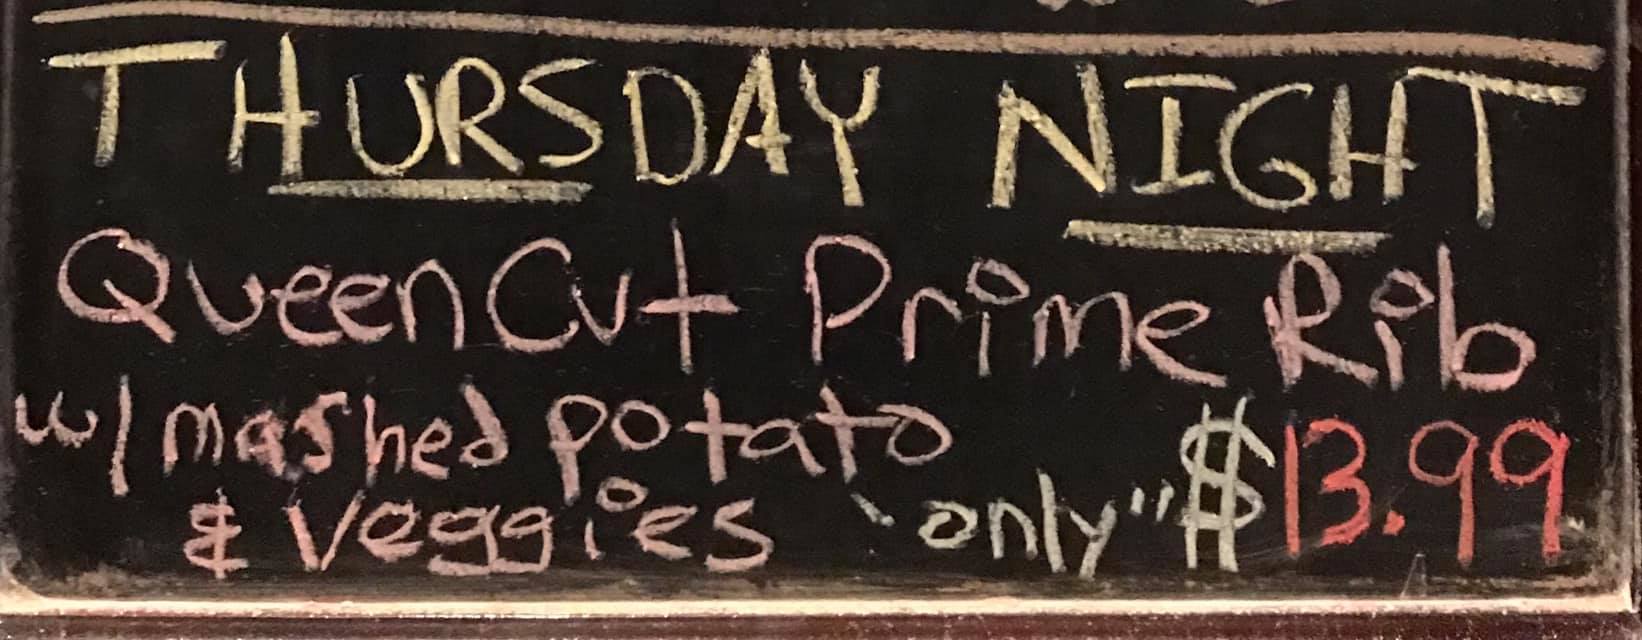 THURSDAY NIGHT
Queen Cut Prime Rib
w/ mashed potato
& Veggies "only" $13.99